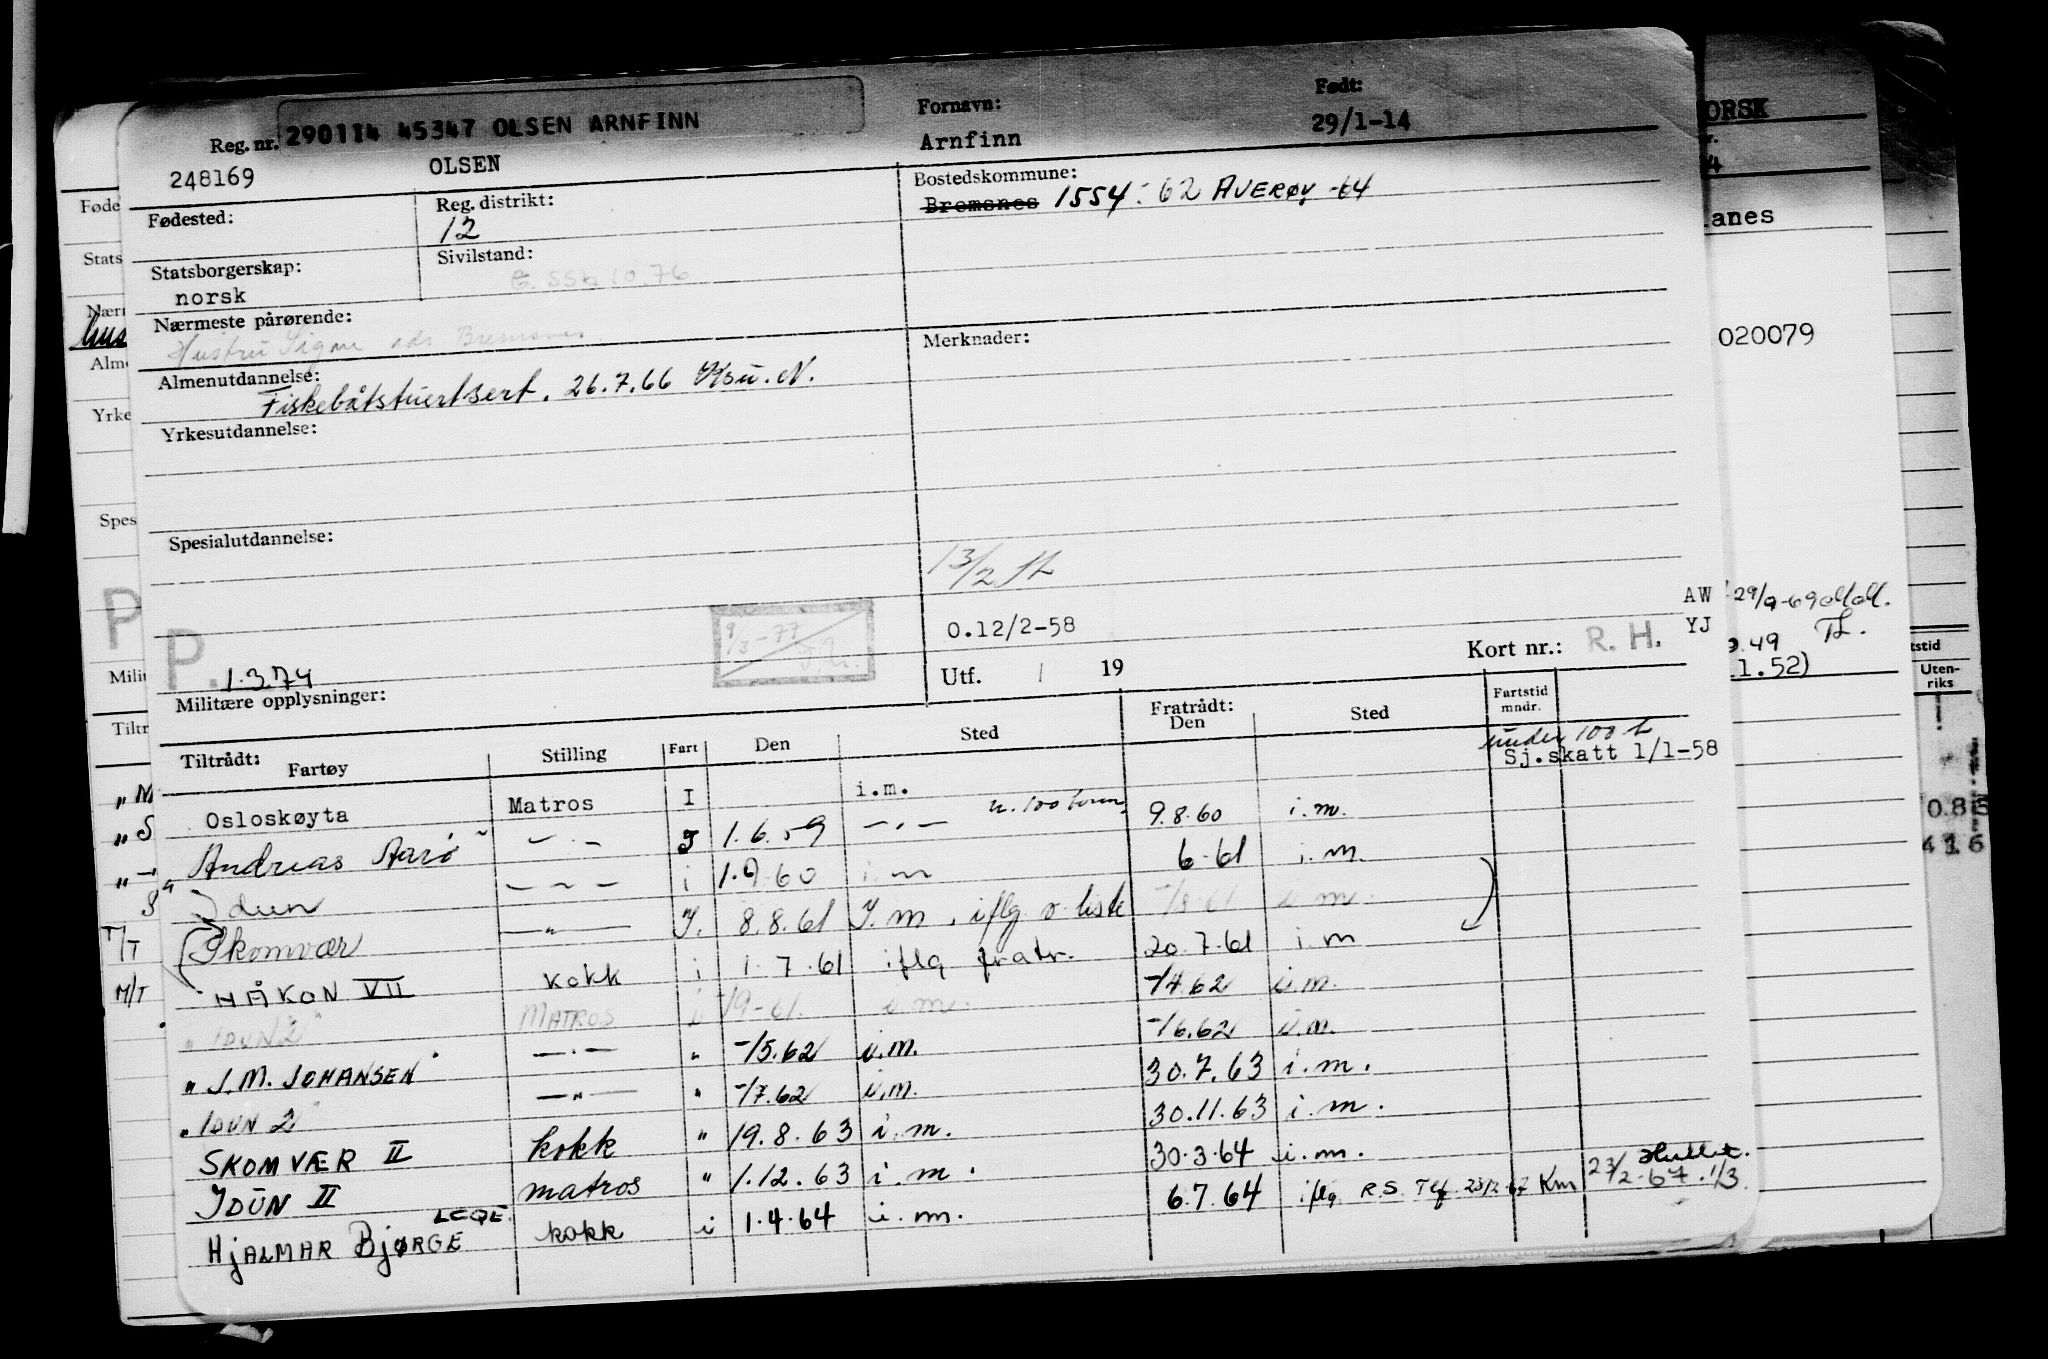 Reg. nr. 290114 45347 OLSEN ARNFINN Fornavn: Født:
248169 OLSEN Arnfinn 29/1-14
Fødested: Reg. distrikt: Bostedskommune:
12 Bremsnes 1554-62 AVERØY -64
Statsborgerskap: Sivilstand:
norsk
Nærmeste pårørende: Merknader:
Hustru Signe adr. Bremsnes
Almenutdannelse:
Fiskebåtstuertsert. 26.7.66 Ksu. N.
Yrkesutdannelse:
Spesialutdannelse:
13/2
9/3-77
O.12/2-58
P. 1.3.74
Militære opplysninger: Utf. 19 Kort nr.: R. H.
Tiltrådt: Fartøy Stilling Fart Den Sted Fratrådt: Den Sted Fartstid mndr.
under 100 t
Sj.skatt 1/1-58
Osloskøyta Matros I i.m. u. 100 tonn 9.8.60 i.m.
Andreas Aarö — " — I 1.6.59 — " — 6-61 i.m.
Idun — " — i 1.9.60 i.m
Skomvær — " — I. 8.8.61 I.m. iflg o. liste 20.7.61 i.m
HÅKON VII kokk i 1.7.61 iflg fratr. -/4.62 i.m.
" IDUN 2 " MATROS i -/9-61. i.m. -/6.62 i.m.
" J.M. JOHANSEN " — " — " -/5.62 i.m. 30.7.63 i.m.
" IDUN 2 " — " — " -/7.62 i.m. 30.11.63 i.m.
SKOMVÆR II kokk " 19.8.63 i.m. 30.3.64 i.m.
IDUN II matros " 1.12.63 i.m. 6.7.64 iflg. R.S. Tlf. 23/2-67 Km
HJALMAR BJØRGE kokk i 1.4.64 i.m.
ORSK
anes
020079
AW 29/9-69
YJ
.49
1.52)
Uten-
riks
0.8
Føde
Stats
Nær
hus
Alm
Yrke
Spes
P
Milit
Tiltr
" M
" S
T/T
M/T